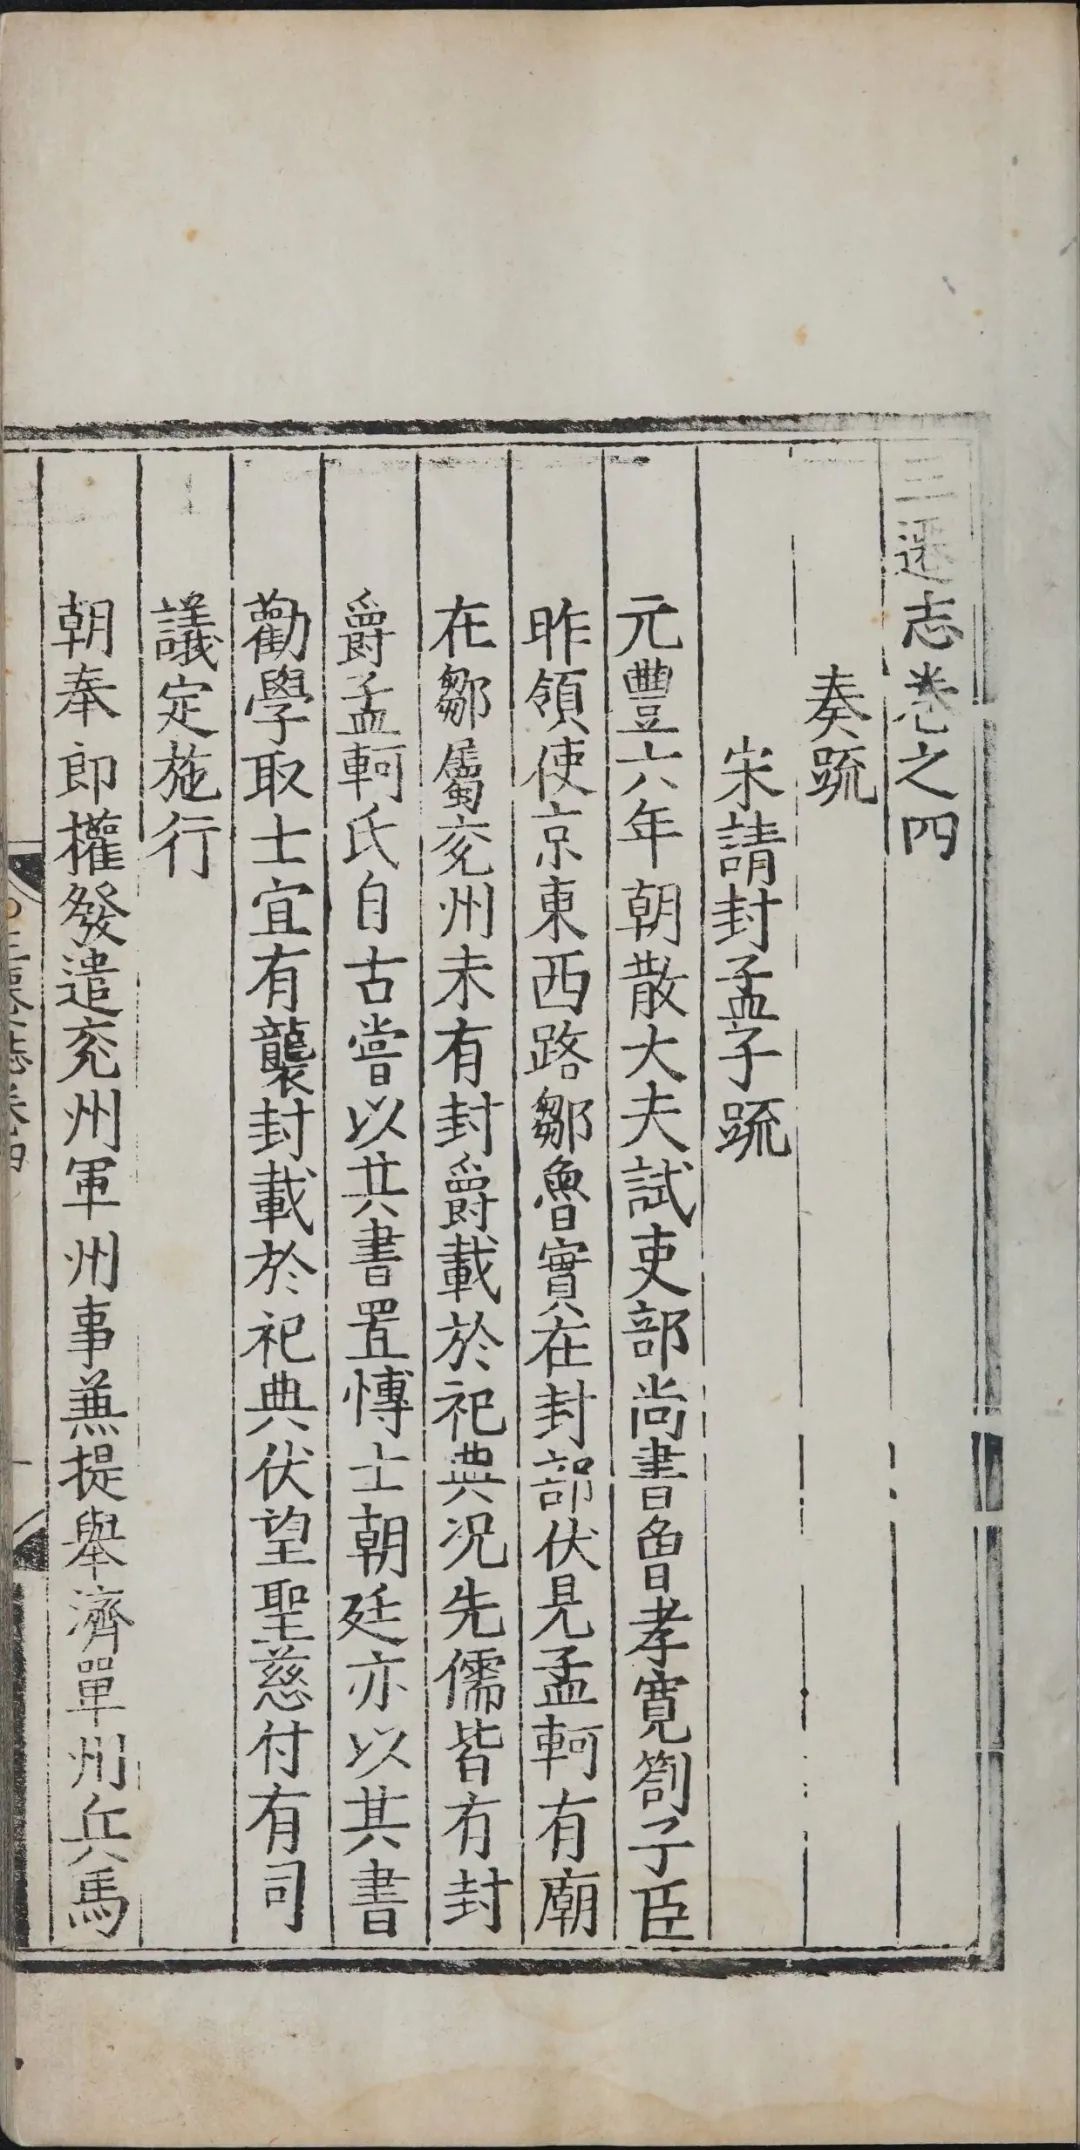 三遷志卷之四
奏疏
宋請封孟子疏
元豐六年朝散大夫試吏部尚書魯孝寬劄子臣
昨領使京東西路鄒魯實在封部伏見孟軻有廟
在鄒屬兖州未有封爵載於祀典况先儒皆有封
爵孟軻氏自古嘗以其書置博士朝廷亦以其書
勸學取士宜有襲封載於祀典伏望聖慈付有司
議定施行
朝奉郎權發遣兖州軍州事兼提舉濟單州兵馬
三遷志卷四